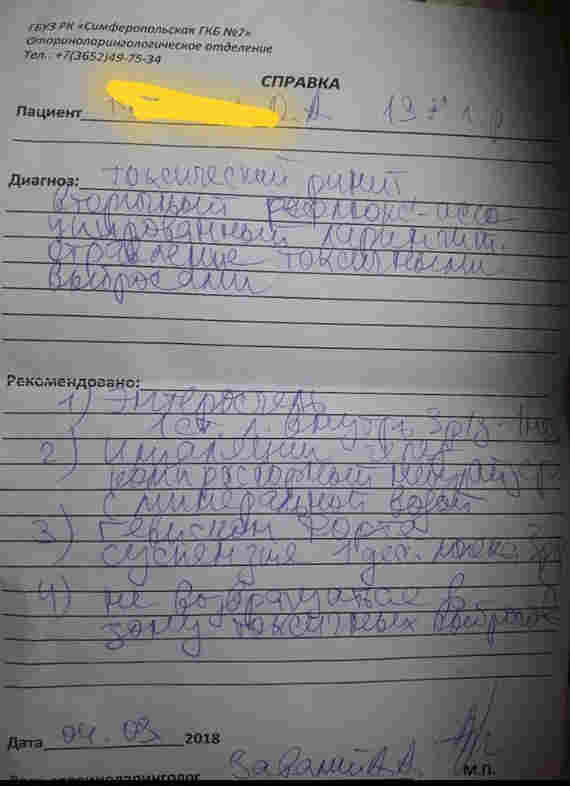 ГБУЗ РК «Симферопольская ГКБ №7»
Оториноларингологическое отделение
Тел.: +7(3652)49-75-34
СПРАВКА
Пациент
Диагноз: токсический ринит,
вторичный рефлюкс-ассо
циированный ларингит.
отравление токсичными
выбросами
Рекомендовано:
1) Энтеросгель
1 ст. л. внутрь 3 р/д
2) Ингаляции через
компрессорный небулайзер
с минеральной водой
3) Гевискон форте
суспензия 1 дес. ложка 3р
4) не возвращаться в
зону токсичных выбросов
Дата 04.09 2018
А.А.
М.П.